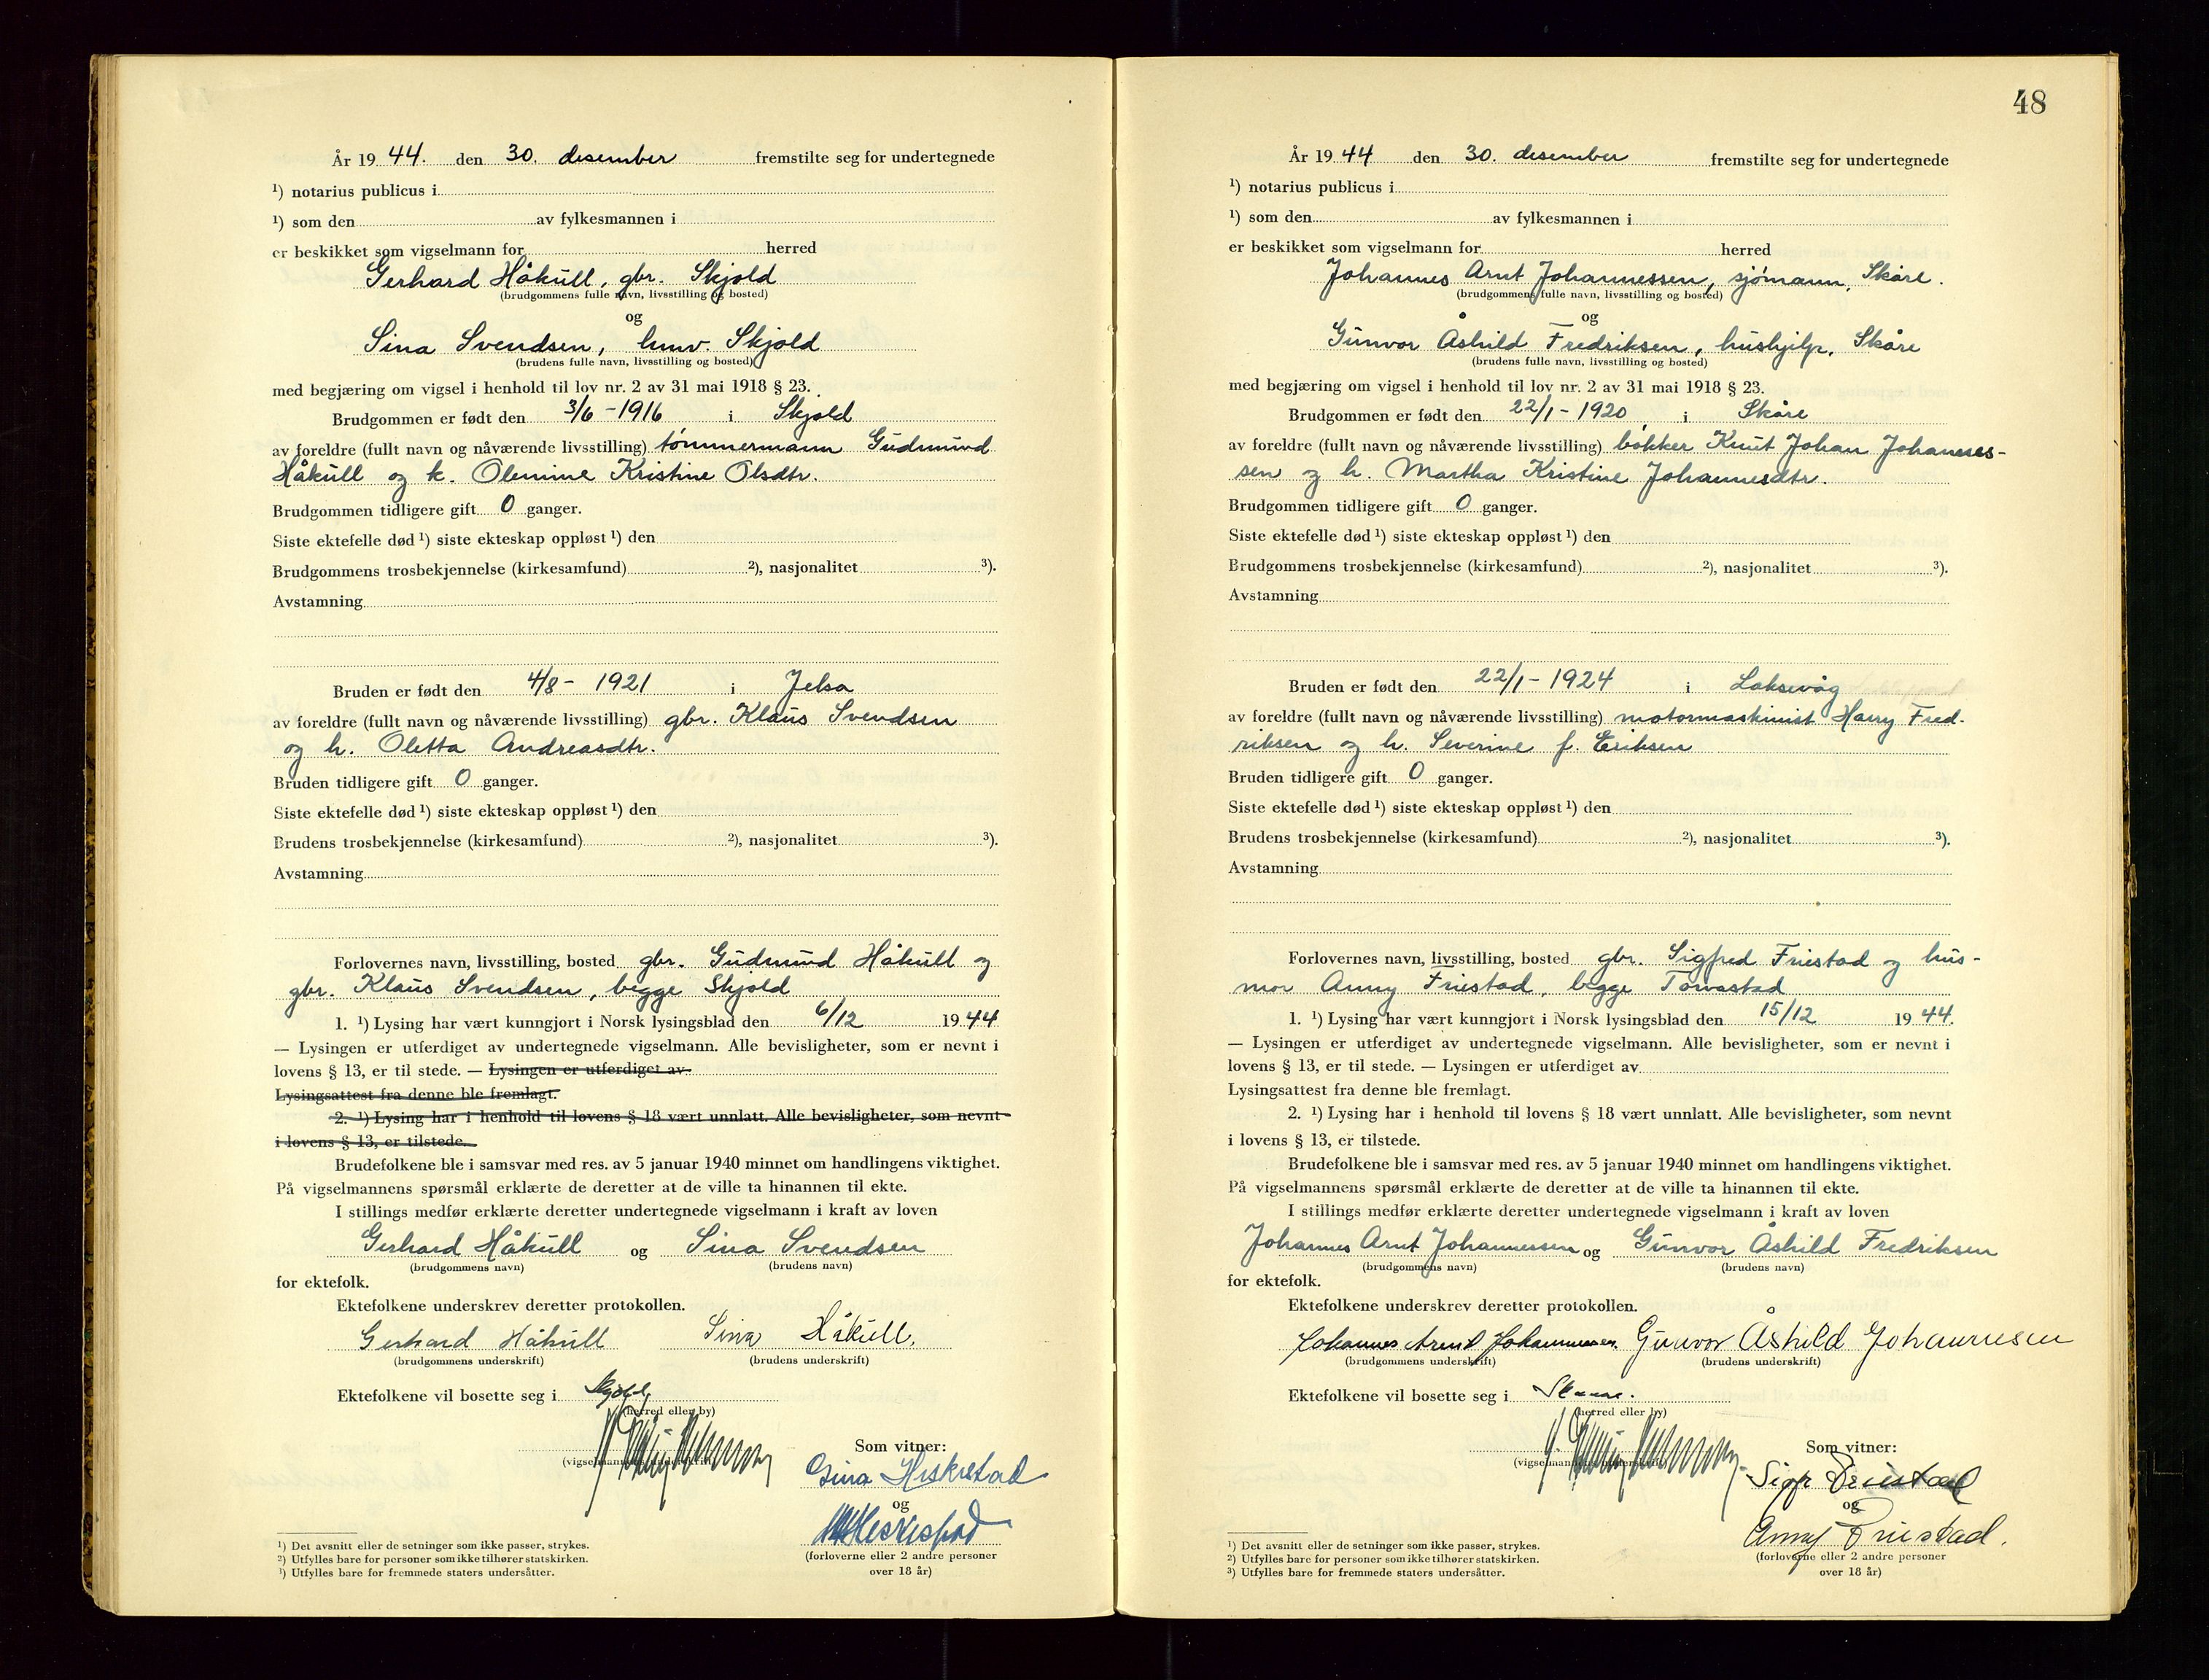 År 19 44. den 30. desember fremstilte seg for undertegnede
¹) notarius publicus i
¹) som den av fylkesmannen i
er beskikket som vigselmann for herred
Gerhard Håkull, gbr. Skjold
(brudgommens fulle navn, livsstilling og bosted)
og
Sina Svendsen, hmv. Skjold
(brudens fulle navn, livsstilling og bosted)
med begjæring om vigsel i henhold til lov nr. 2 av 31 mai 1918 § 23.
Brudgommen er født den 3/6 - 1916 i Skjold
av foreldre (fullt navn og nåværende livsstilling) tømmermann Gudmund
Håkull og k. Olemine Kristine Olsdtr.
Brudgommen tidligere gift 0 ganger.
Siste ektefelle død ¹) siste ekteskap oppløst ¹) den
Brudgommens trosbekjennelse (kirkesamfund) ²), nasjonalitet ³).
Avstamning
Bruden er født den 4/8 - 1921 i Jelsa
av foreldre (fullt navn og nåværende livsstilling) gbr. Klaus Svendsen
og h. Oletta Andreasdtr.
Bruden tidligere gift 0 ganger.
Siste ektefelle død ¹) siste ekteskap oppløst ¹) den
Brudens trosbekjennelse (kirkesamfund) ²), nasjonalitet ³).
Avstamning
Forlovernes navn, livsstilling, bosted gbr. Gudmund Håkull og
gbr. Klaus Svendsen, begge Skjold
1. ¹) Lysing har vært kunngjort i Norsk lysingsblad den 6/12 19 44
— Lysingen er utferdiget av undertegnede vigselmann. Alle bevisligheter, som er nevnt i
lovens § 13, er til stede. — Lysingen er utferdiget av
Lysingsattest fra denne ble fremlagt.
2. ¹) Lysing har i henhold til lovens § 18 vært unnlatt. Alle bevisligheter, som nevnt
i lovens § 13, er tilstede.
Brudefolkene ble i samsvar med res. av 5 januar 1940 minnet om handlingens viktighet.
På vigselmannens spørsmål erklærte de deretter at de ville ta hinannen til ekte.
I stillings medfør erklærte deretter undertegnede vigselmann i kraft av loven
Gerhard Håkull og Sina Svendsen
(brudgommens navn) (brudens navn)
for ektefolk.
Ektefolkene underskrev deretter protokollen.
Gerhard Håkull Sina Håkull.
(brudgommens underskrift) (brudens underskrift)
Ektefolkene vil bosette seg i Skjold
(herred eller by)
Som vitner:
(vigselmannens underskrift)
og
(forloverne eller 2 andre personer
over 18 år)
¹) Det avsnitt eller de setninger som ikke passer, strykes.
²) Utfylles bare for personer som ikke tilhører statskirken.
¹) Utfylles bare for fremmede staters undersåtter.
48
År 19 44 den 30. desember fremstilte seg for undertegnede
¹) notarius publicus i
¹) som den av fylkesmannen i
er beskikket som vigselmann for herred
Johannes Arnt Johannessen, sjømann, Skåre.
(brudgommens fulle navn, livsstilling og bosted)
og
Gunvor Åshild Fredriksen, hushjelp, Skåre
(brudens fulle navn, livsstilling og bosted)
med begjæring om vigsel i henhold til lov nr. 2 av 31 mai 1918 § 23.
Brudgommen er født den 22/1 - 1920 i Skåre
av foreldre (fullt navn og nåværende livsstilling) bøkker Knut Johan Johannes-
sen og h. Martha Kristine Johannesdtr.
Brudgommen tidligere gift 0 ganger.
Siste ektefelle død ¹) siste ekteskap oppløst ¹) den
Brudgommens trosbekjennelse (kirkesamfund) ²), nasjonalitet ³).
Avstamning
Bruden er født den 22/1 - 1924 i Laksevåg
av foreldre (fullt navn og nåværende livsstilling) motormaskinist Harry Fred-
riksen og h. Severine f. Eriksen
Bruden tidligere gift 0 ganger.
Siste ektefelle død ¹) siste ekteskap oppløst ¹) den
Brudens trosbekjennelse (kirkesamfund) ²), nasjonalitet ³).
Avstamning
Forlovernes navn, livsstilling, bosted gbr. Sigfred Friestad og hus-
mor Anny Friestad, begge Torvastad
1. ¹) Lysing har vært kunngjort i Norsk lysingsblad den 15/12 19 44.
— Lysingen er utferdiget av undertegnede vigselmann. Alle bevisligheter, som er nevnt i
lovens § 13, er til stede. — Lysingen er utferdiget av
Lysingsattest fra denne ble fremlagt.
2. ¹) Lysing har i henhold til lovens § 18 vært unnlatt. Alle bevisligheter, som nevnt
i lovens § 13, er tilstede.
Brudefolkene ble i samsvar med res. av 5 januar 1940 minnet om handlingens viktighet.
På vigselmannens spørsmål erklærte de deretter at de ville ta hinannen til ekte.
I stillings medfør erklærte deretter undertegnede vigselmann i kraft av loven
Johannes Arnt Johannessen og Gunvor Åshild Fredriksen
(brudgommens navn) (brudens navn)
for ektefolk.
Ektefolkene underskrev deretter protokollen.
Johannes Arnt Johannessen. Gunvor Åshild Johannesen
(brudgommens underskrift) (brudens underskrift)
Ektefolkene vil bosette seg i Skaare.
(herred eller by)
Som vitner:
(vigselmannens underskrift)
Sigfr Friestad
og
Anny Friestad.
(forloverne eller 2 andre personer
over 18 år)
¹) Det avsnitt eller de setninger som ikke passer, strykes.
²) Utfylles bare for personer som ikke tilhører statskirken.
³) Utfylles bare for fremmede staters undersåtter.